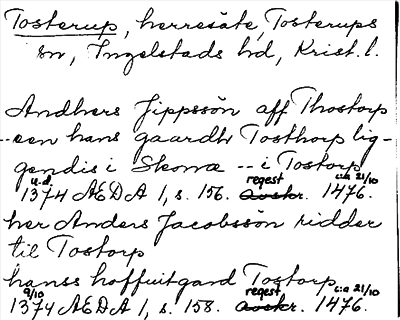 Tosterup, herresäte, Tosterups
sn, Ingelstads hd, Krist. l.
Andhers Jippssön aff Thostorp
-- een hans gaardhr Tosthorp lig-
gendis i Skonæ -- i Tostorp
u.d. regest c:a 21/10
1374 ÆDA 1, s. 156. Avskr. 1476.
her Anders Jacobssön ridder
til Tostorp
hanss hoffuitgard Tostorp
9/10 regest c:a 21/10
1374 ÆDA 1, s. 158. Avskr. 1476.